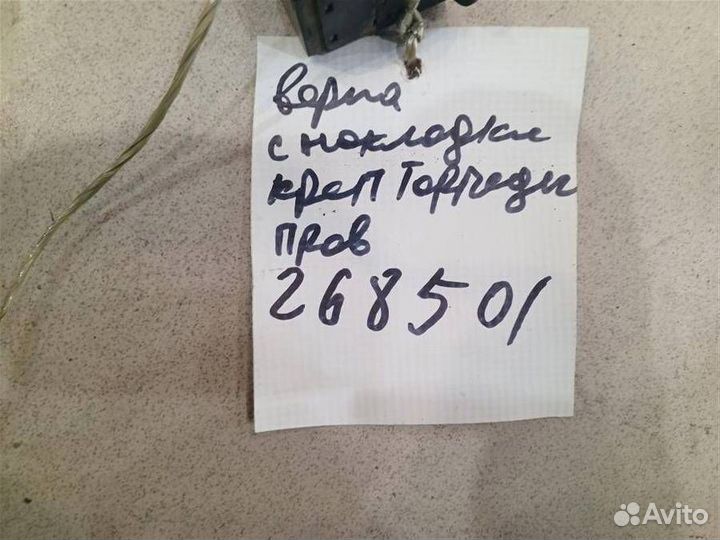 верна
с накладки
креп Торпеды
прав
268501
Avito